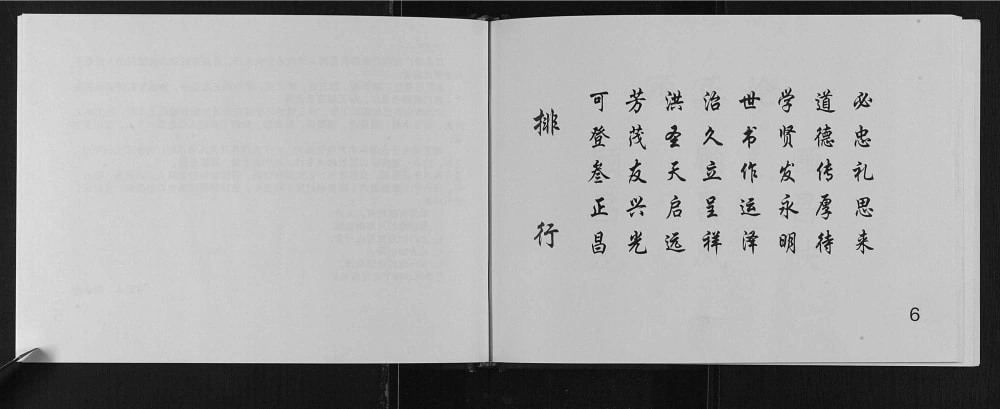 排行
可登叁正昌
芳茂友兴光
洪圣天启远
治久立呈祥
世书作运泽
学贤发永明
道德传厚待
必忠礼思来
6